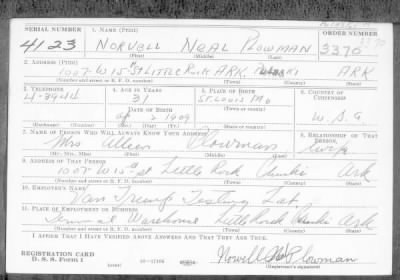 SERIAL NUMBER 1. NAME (Print) ORDER NUMBER
4123 NORVELL NEAL PLOWMAN 3370
(First) (Middle) (Last)
2. ADDRESS (Print)
1007-W 15th St LITTLE ROCK ARK. ARK
(Number and street or R. F. D. number) (Town) (County) (State)
3. TELEPHONE 4. AGE IN YEARS 5. PLACE OF BIRTH 6. COUNTRY OF CITIZENSHIP
4-3944 31 ST. LOUIS MO
DATE OF BIRTH
2 1909 U.S.A.
(Mo.) (Day) (Yr.) (Town) (County) (State or country)
7. NAME OF PERSON WHO WILL ALWAYS KNOW YOUR ADDRESS 8. RELATIONSHIP OF THAT PERSON
Mrs Plowman Wife
(Mr., Mrs., Miss) (First) (Middle) (Last)
9. ADDRESS OF THAT PERSON
1007-W 15th St Little Rock Pulaski Ark
(Number and street or R. F. D. number) (Town) (County) (State)
10. EMPLOYER'S NAME
Testing Lab.
11. PLACE OF EMPLOYMENT OR BUSINESS
Terminal Warehouse Little Rock Pulaski Ark
(Number and street or R. F. D. number) (Town) (County) (State)
I AFFIRM THAT I HAVE VERIFIED ABOVE ANSWERS AND THAT THEY ARE TRUE.
REGISTRATION CARD
D. S. S. Form 1 16-17105 Plowman
(Registrant's signature)